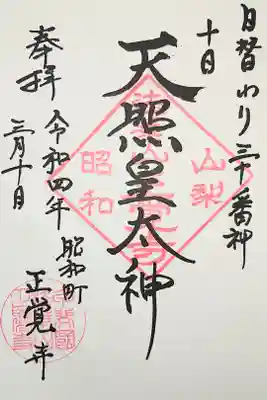 日替わり三十番神
十日
天照皇太神
山梨
昭和
奉拝
令和四年
三月十日
昭和町
正覚寺